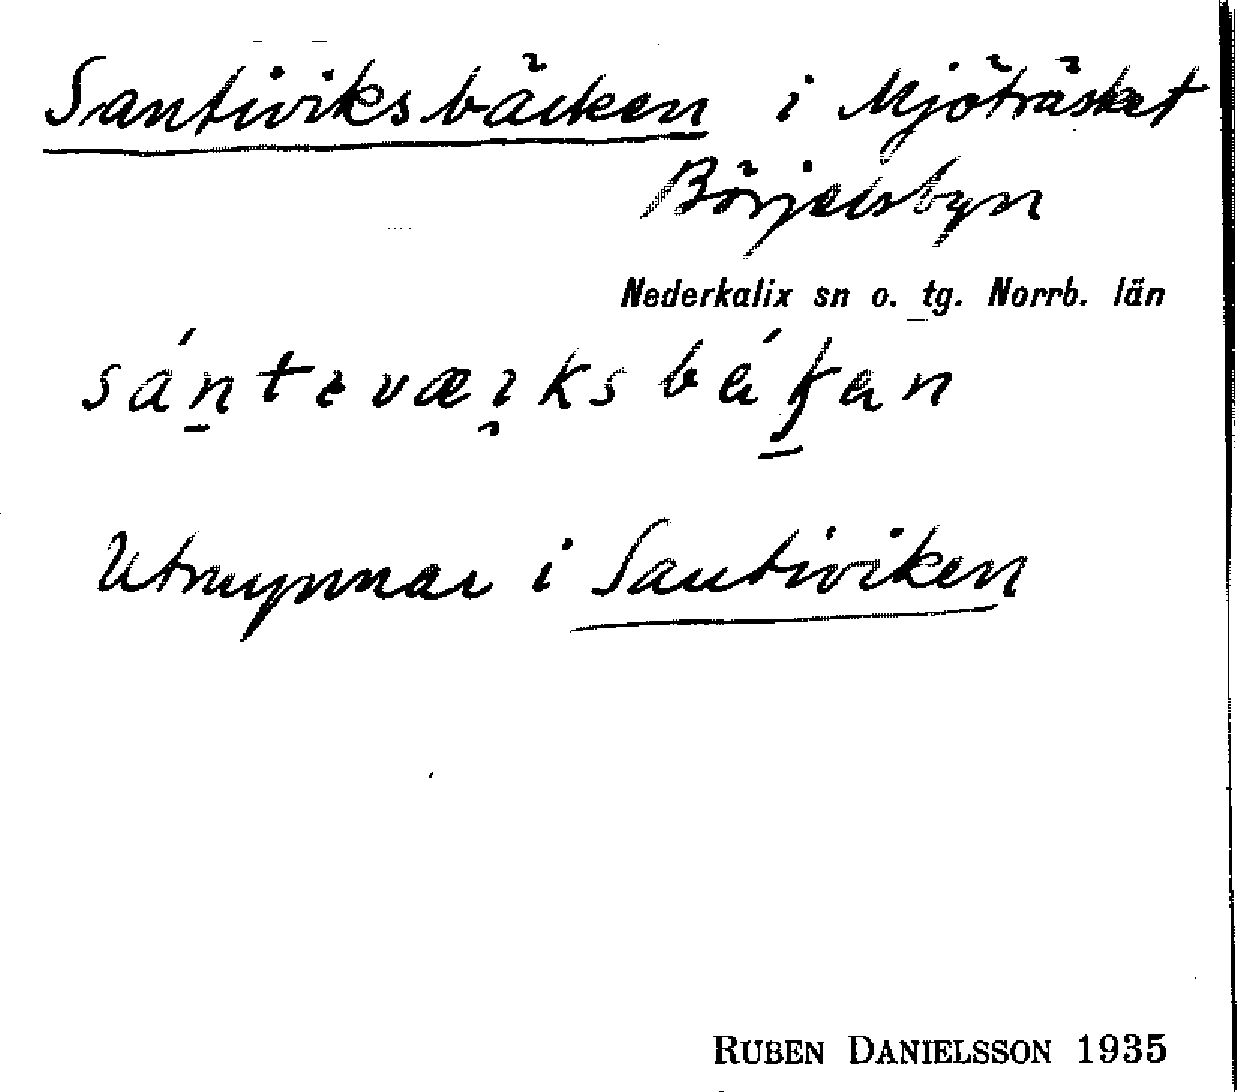 Santiviksbäcken i Mjöträsket
Börjelsbyn
Nederkalix sn o. tg. Norrb. län
Utmynnar i Santiviken
RUBEN DANIELSSON 1935